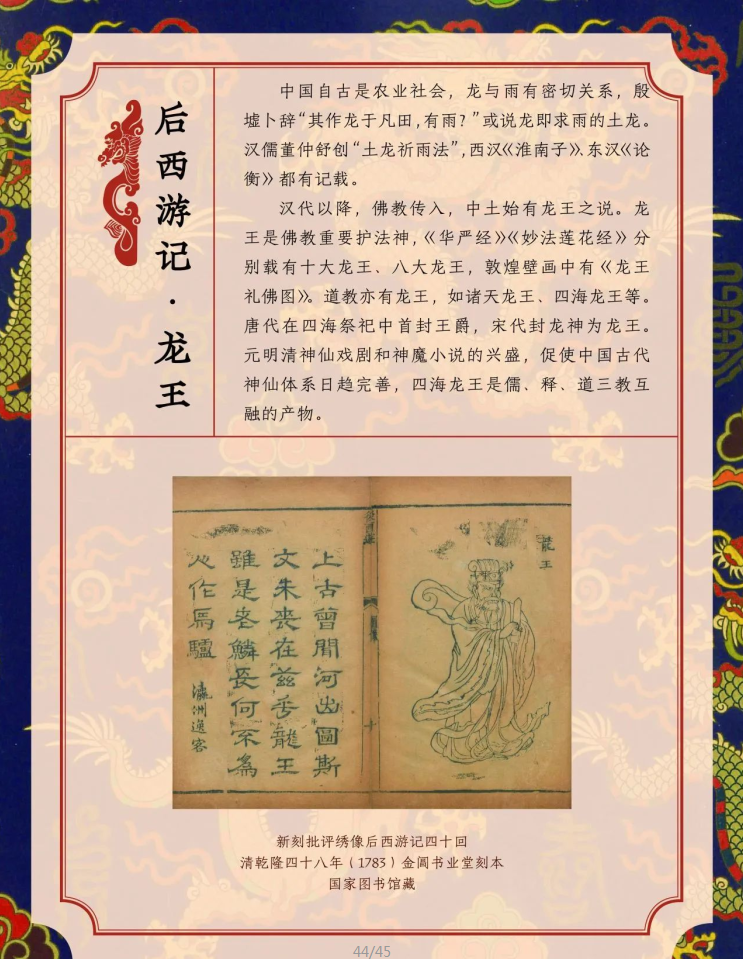 后西游记·龙王
中国自古是农业社会，龙与雨有密切关系，殷
墟卜辞“其作龙于凡田,有雨？”或说龙即求雨的土龙。
汉儒董仲舒创“土龙祈雨法”,西汉《淮南子》、东汉《论
衡》都有记载。
汉代以降，佛教传入，中土始有龙王之说。龙
王是佛教重要护法神，《华严经》《妙法莲花经》分
别载有十大龙王、八大龙王，敦煌壁画中有《龙王
礼佛图》。道教亦有龙王，如诸天龙王、四海龙王等。
唐代在四海祭祀中首封王爵，宋代封龙神为龙王。
元明清神仙戏剧和神魔小说的兴盛，促使中国古代
神仙体系日趋完善，四海龙王是儒、释、道三教互
融的产物。
龍王
上古曾聞河出圖斯
文未喪在兹乎龍王
雖是長何不為
作馬驢
瀛洲逸客
新刻批评绣像后西游记四十回
清乾隆四十八年（1783）金阊书业堂刻本
国家图书馆藏
44/45